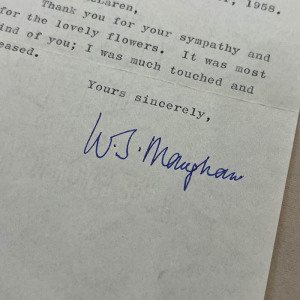 , 1958.
Laren,
Thank you for your sympathy and
for the lovely flowers. It was most
ind of you; I was much touched and
eased.
Yours sincerely,
W.S. Maugham